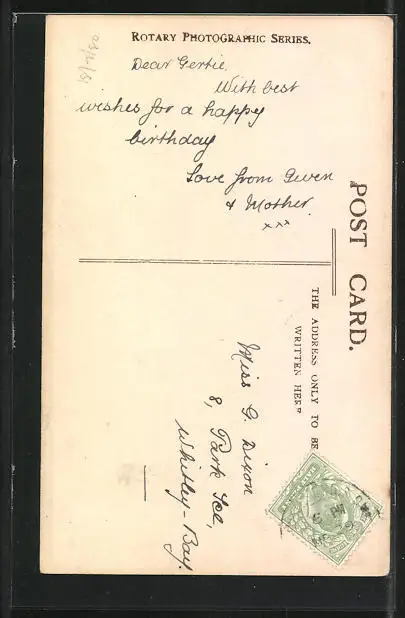 ROTARY PHOTOGRAPHIC SERIES.
Dear Gertie.
With best
wishes for a happy
birthday
Love from Gwen
& Mother.
xxx
POST CARD.
THE ADDRESS ONLY TO BE
WRITTEN HERE
Miss G. Dixon
8, Park Tce,
Whitley-Bay.